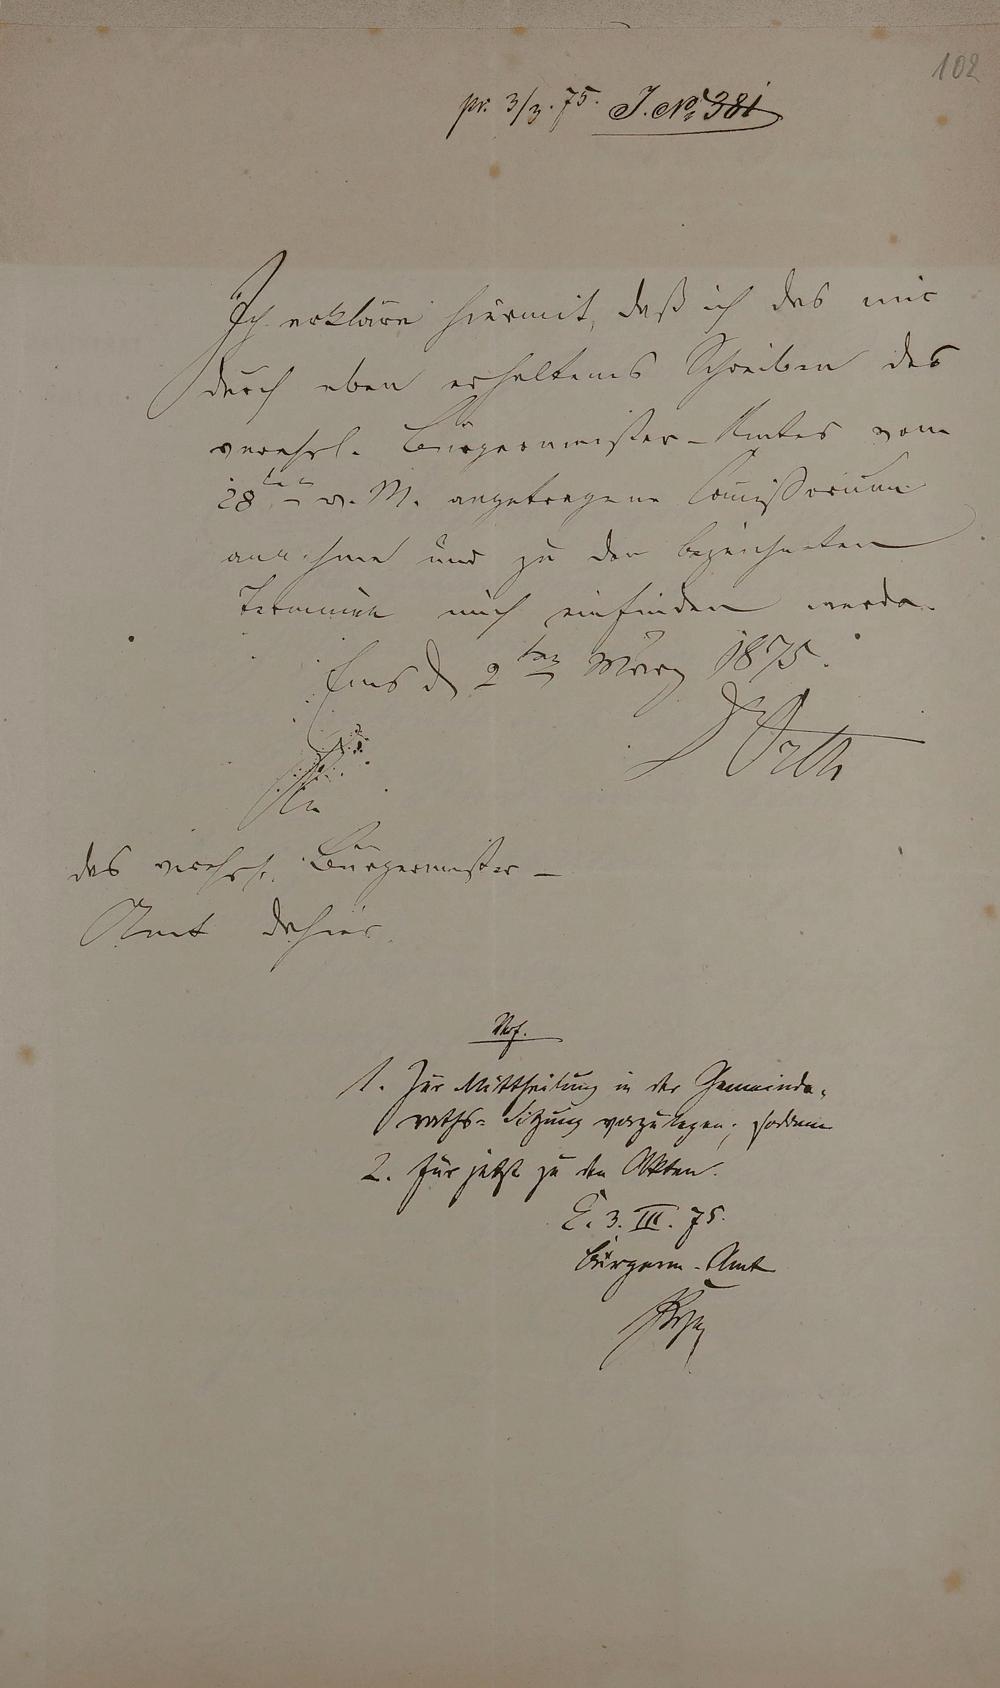 102
pr. 3/3. 75. J. No 381
Ich erkläre hiermit, daß ich das mir
durch eben erhaltenes Schreiben des
verehrl. Bürgermeister-Amtes vom
28ten v. M. angetragene Comissorium
annehme und zu den bezeichneten
Terminen mich einfinden werde.
Ems d 2ten März 1875.
Orth
An
das verehrl. Bürgermeister-
Amt dahier.
Verf.
1. Zur Mittheilung in der Gemeinde-
raths-Sitzung vorzulegen; sodann
2. Für jetzt zu den Akten.
E. 3. III. 75.
Bürgerm.-Amt